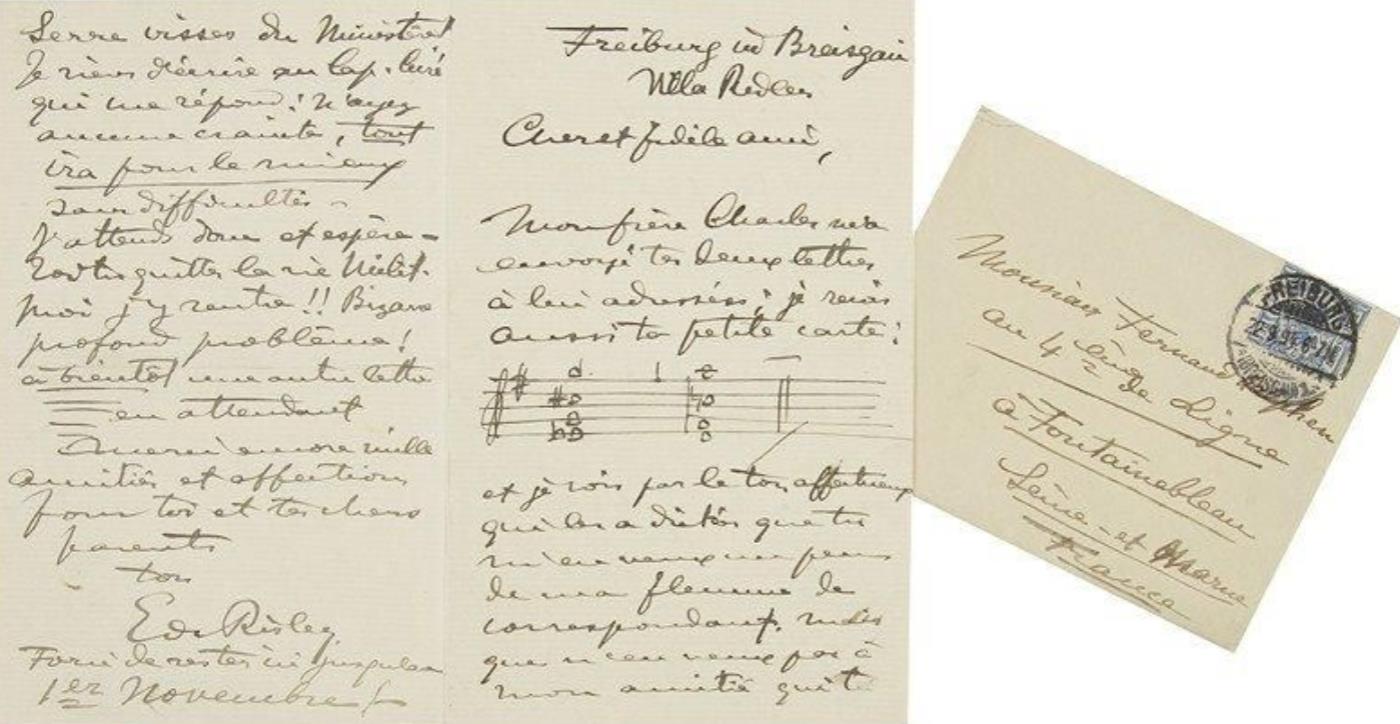 Serre visses du Ministère
Je viens d'écrire au Cap.
qui me répond: N'ayez
aucune crainte, tout
ira pour le mieux
sans difficultés -
J'attends donc et espère -
quitter la rue
moi j'y rentre!! Bizarre
profond problème!
à bientôt une autre lettre
en attendant
merci encore mille
amitiés et affections
pour toi et tes chers
parents
ton
Ed. Risler
Forcé de rester ici jusqu'au
1er Novembre
Freiburg in Breisgau
Villa
Cher et fidèle ami,
Mon frère Charles m'a
envoyé tes deux lettres
à lui adressées; je reçois
aussi ta petite carte:
et je vois par le ton affectueux
qui les a dictées que tu
m'en veux un peu
de ma flemme de
correspondant, mais
que n'en veux pas à
mon amitié qui t
Monsieur Fernand
au 4e de Ligne
à Fontainebleau
Seine-et Marne
France
FREIBURG